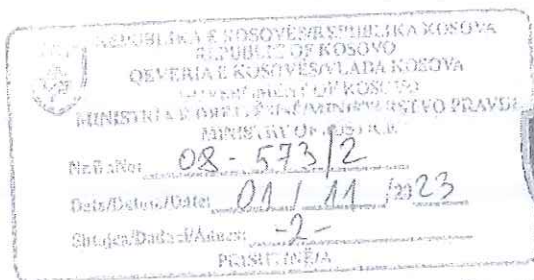 REPUBLIKA E KOSOVËS/REPUBLIKA KOSOVA
REPUBLIC OF KOSOVO
QEVERIA E KOSOVËS/VLADA KOSOVA
GOVERNMENT OF KOSOVO
MINISTRIA E DREJTËSISË/MINISTERSTVO PRAVDE
MINISTRY OF JUSTICE
Nr/Br/No: 08-573/2
Data/Datum/Date: 01/11/2023
-2-
PRISHTINË/A